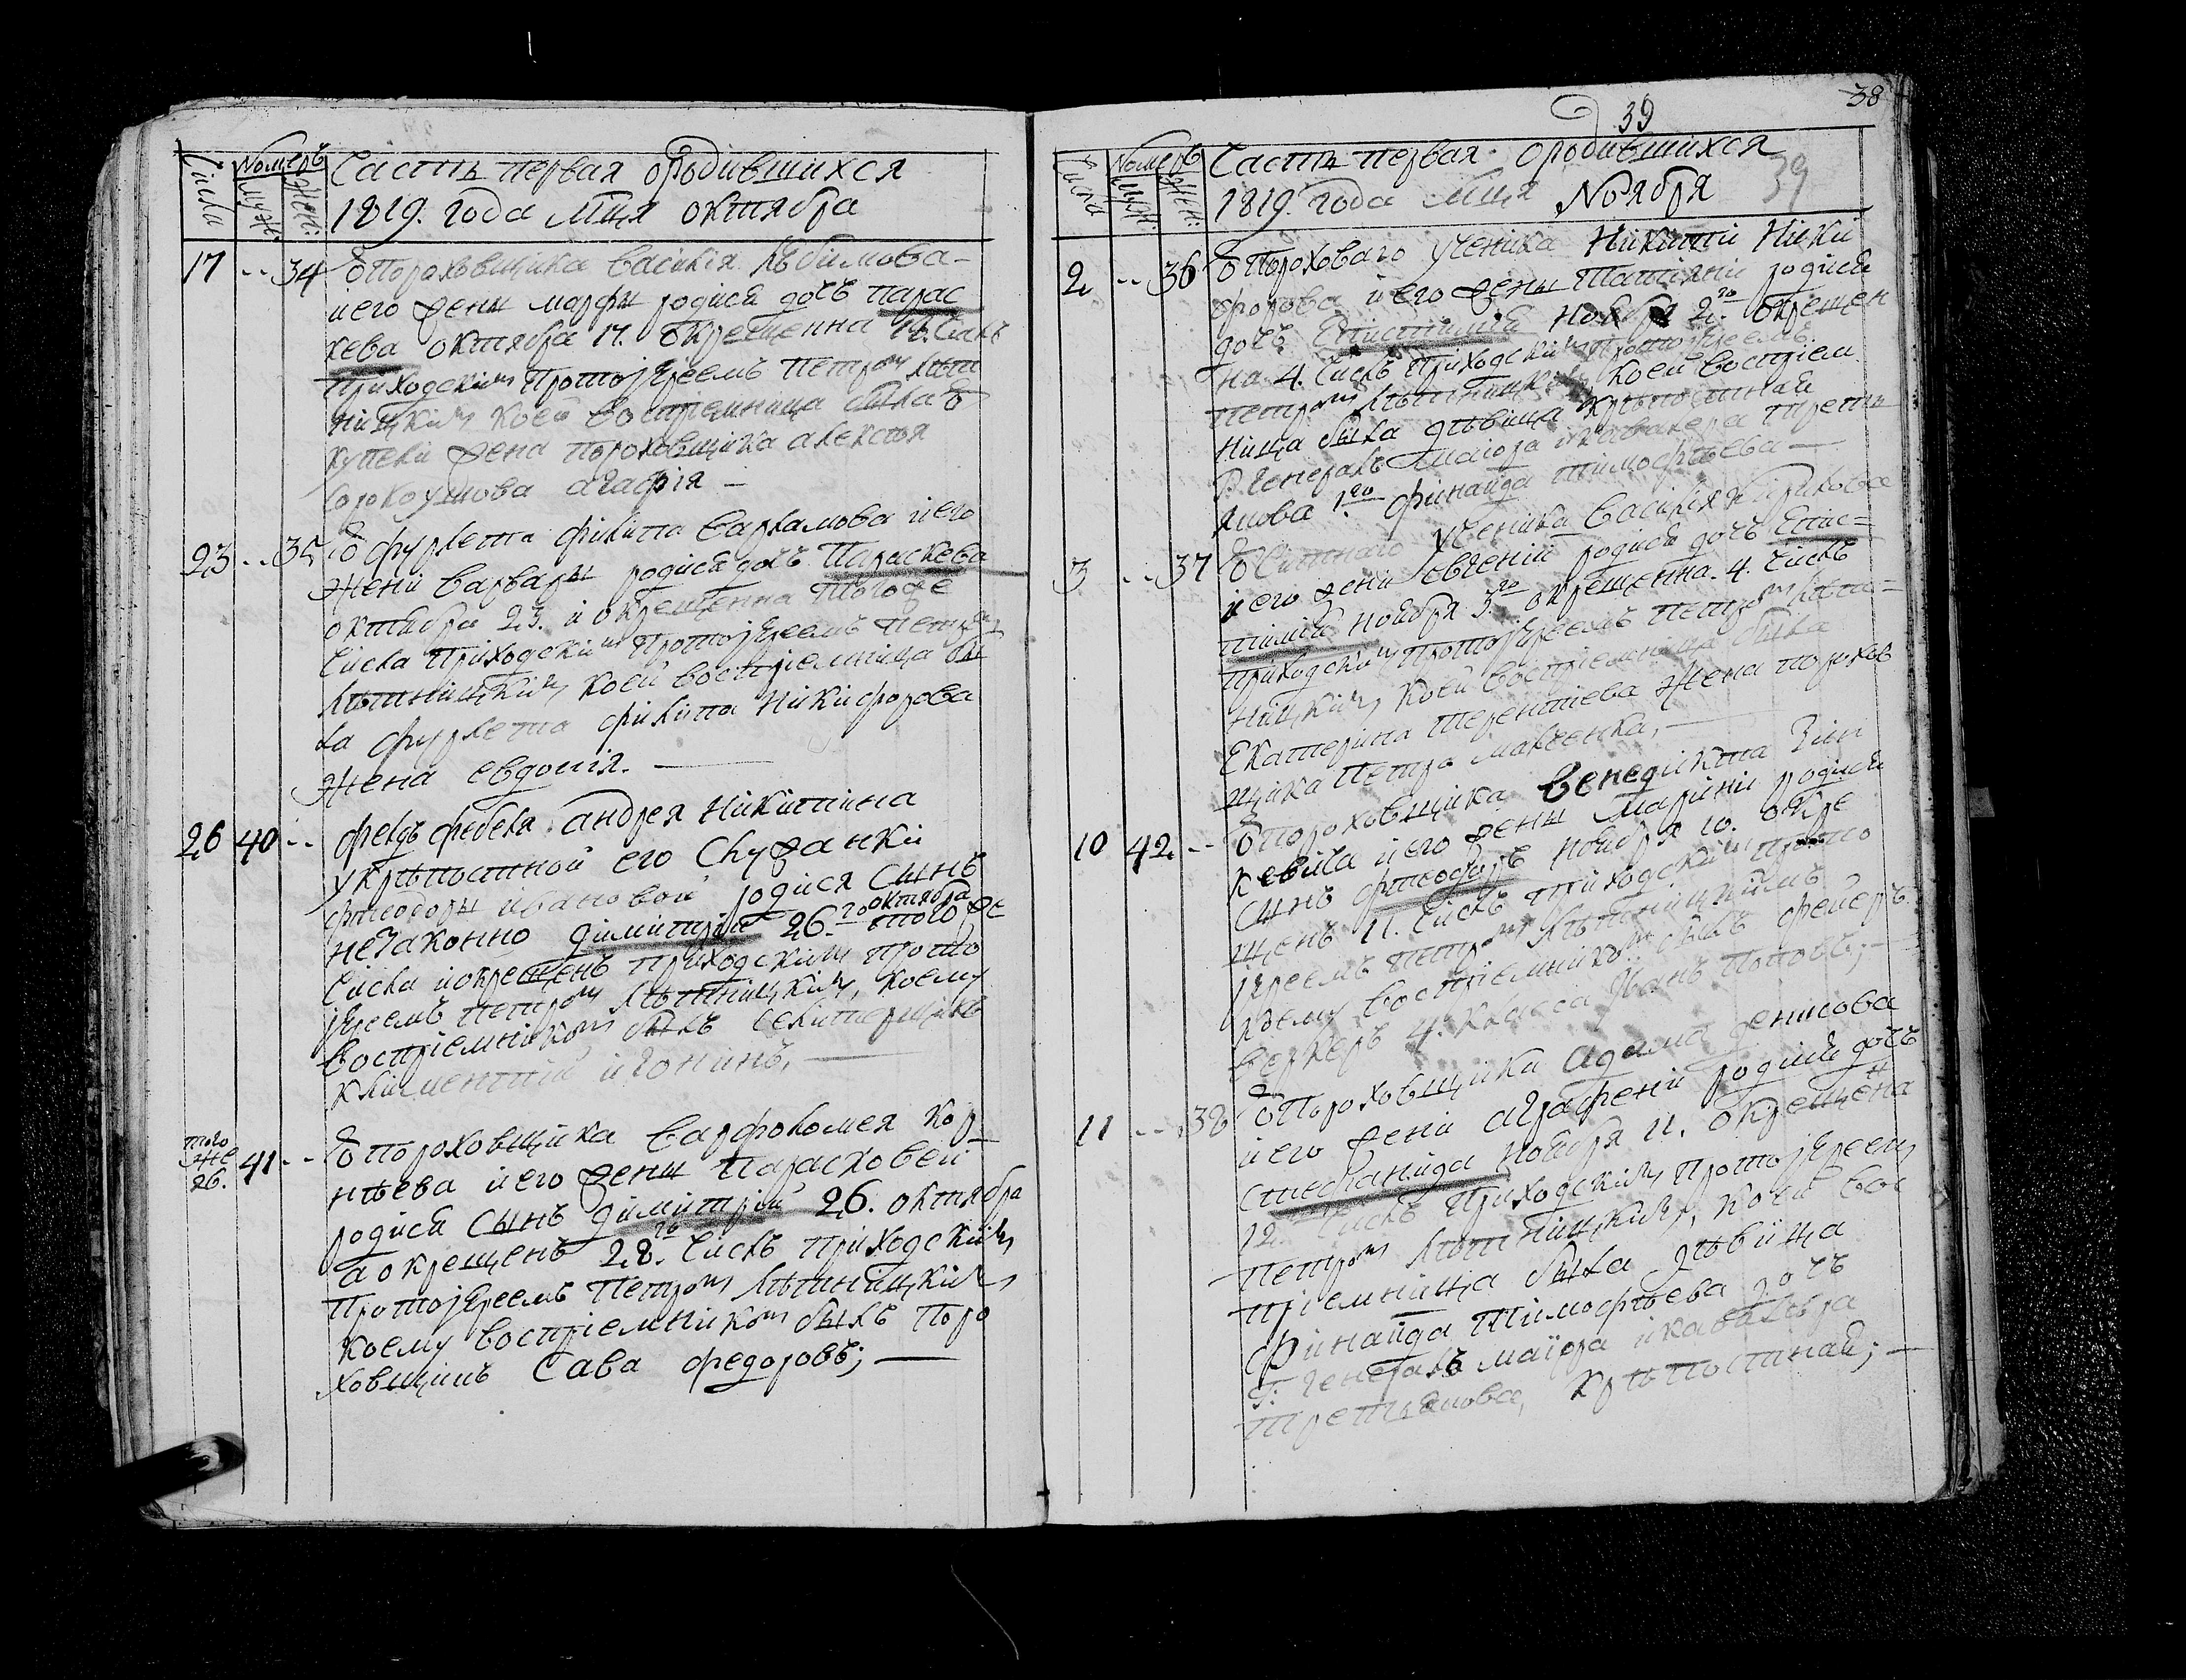 Числа Номеръ Муж: Жен: Часть первая ородившихся
1819. года мца октября
17 -- 34 Ѿ Пороховщика Василія Любимова
иего жены марфы родися дочъ парас
кева октября 17. окрещенна 18. числъ
приходскимъ протоіереемъ петромъ лѣт
ницкимъ коей воспріемница была Ѿ
купеки жена пороховщика алексѣя
Сорокоумова агафія —
23 -- 35 Ѿ фурлета филипа Варламова иего
жени варвары родися дочъ Параскева
октября 23. и окрещенна того же
числа приходскимъ протоіереемъ петромъ
Лѣтницкимъ коей воспріемница бы
ла фурлета филипа Никифорова
жена евдокія. —
26 40 -- фелдъ фебеля андрея Никитина
укрѣпостной его Служанки
ѳеодоры ивановой родися Сынъ
незаконно димитрій 26.го октября того же
числа иокрещенъ приходскимъ прото
іереемъ петромъ Лѣтницкимъ, коему
воспріемникомъ былъ селитерщикъ
Климентій игонинъ, —
того
же
26. 41 -- Ѿ пороховщика Варфоломея Кор_
нѣева иего жены Парасковей
родися Сынъ димитрій 26. октября
а окрещенъ 28.го числъ приходскимъ
Протоіереемъ Петромъ Лѣтницкимъ
коему воспріемникомъ былъ поро
ховщикъ Сава федоровъ; —
38
39
39
Числа Номеръ Муж: Жен: Часть первая ородившихся
1819. года мца Ноября
2 -- 36 Ѿ Пороховаго ученика Никити Ники
форова иего жены Татіяни родися
дочъ Епистимія Ноября 2.го окрещен
на 4. числъ приходскимъ протоіереемъ
петромъ Лѣтницкимъ, коей воспріем
ница была дѣвица крѣпостная
Г. генералъ маіора икавалера Треть
якова 1го финаида тимофѣева —
3 -- 37 Ѿ ученика Василія Кирилова
иего жени евгеніи родися дочъ Епис=
тимія Ноября 3.го окрещенна. 4. числъ
приходскимъ протоіереемъ петромъ лѣт=
ницкимъ коей воспріемница была
Екатерина терентіева жена порохов
щика петра Макѣенка, —
10 42 -- Ѿ пороховщика Венедикта Зин
кевича иего жены марини родися
сынъ ѳеодоръ ноября 10. окре
щенъ 11. числъ приходскимъ прото
іереемъ петромъ Лѣтницкимъ
коему воспріемникомъ былъ феиеръ
веркеръ 4. класса Иванъ поповъ; —
11 -- 38 Ѿ Пороховщика Адама Денисова
и его жени аграфени родися дочъ
стефанида ноября 11. окрещена
12. числъ приходскимъ протоіереемъ
петромъ Лѣтницкимъ, коей вос
пріемница была дѣвица
Финаида Тимофѣева дочъ
Г: генералъ маіора икавалѣра
третьякова, крѣпостная; —